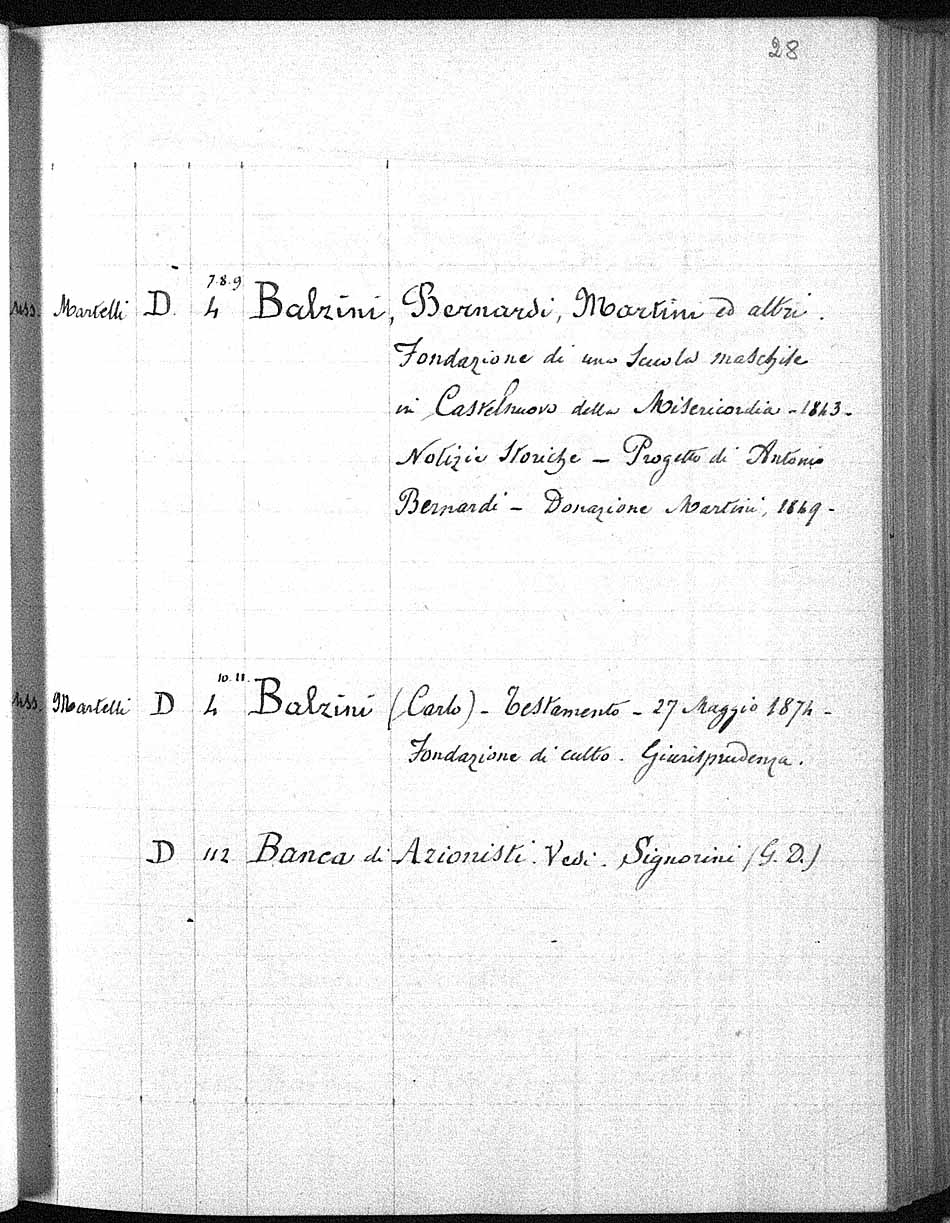 28
7.8.9
Mss. Martelli D. 4 Balzini, Bernardi, Martini ed altri.
Fondazione di una Scuola maschile
in Castelnuovo della Misericordia - 1843 -
Notizie Storiche - Progetto di Antonio
Bernardi - Donazione Martini, 1849 -
10.11.
Mss. Martelli D 4 Balzini (Carlo) - Testamento - 27 Maggio 1874 -
Fondazione di culto. Giurisprudenza.
D 112 Banca di Azionisti. Vedi. Signorini (G. D.)